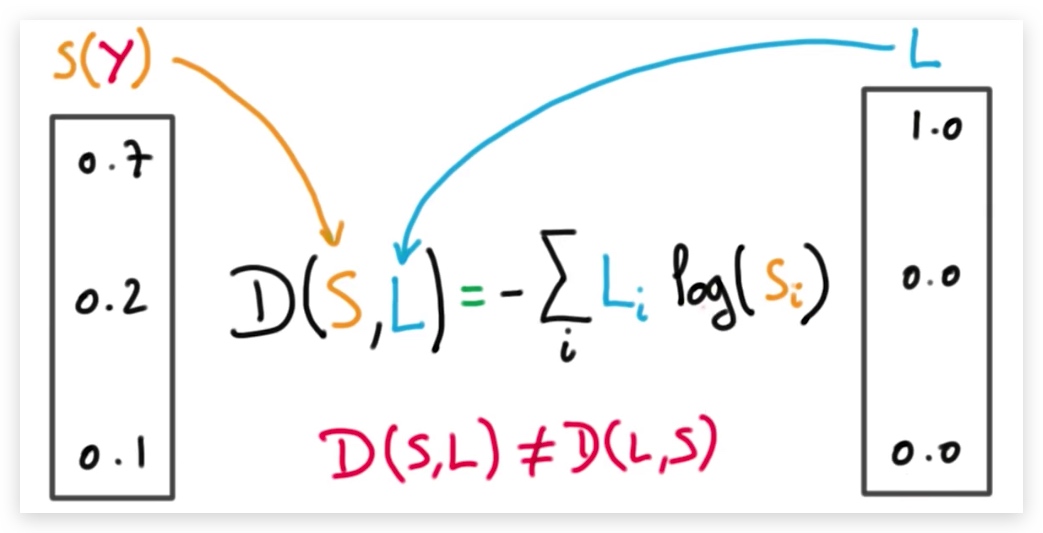 S(Y)
L
0.7
0.2
0.1
D(S,L) = - ∑ᵢ Lᵢ log(Sᵢ)
D(S,L) ≠ D(L,S)
1.0
0.0
0.0